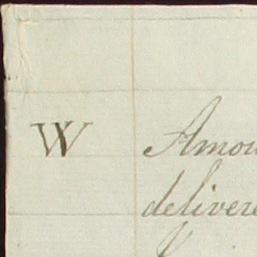 W Amou
delivere